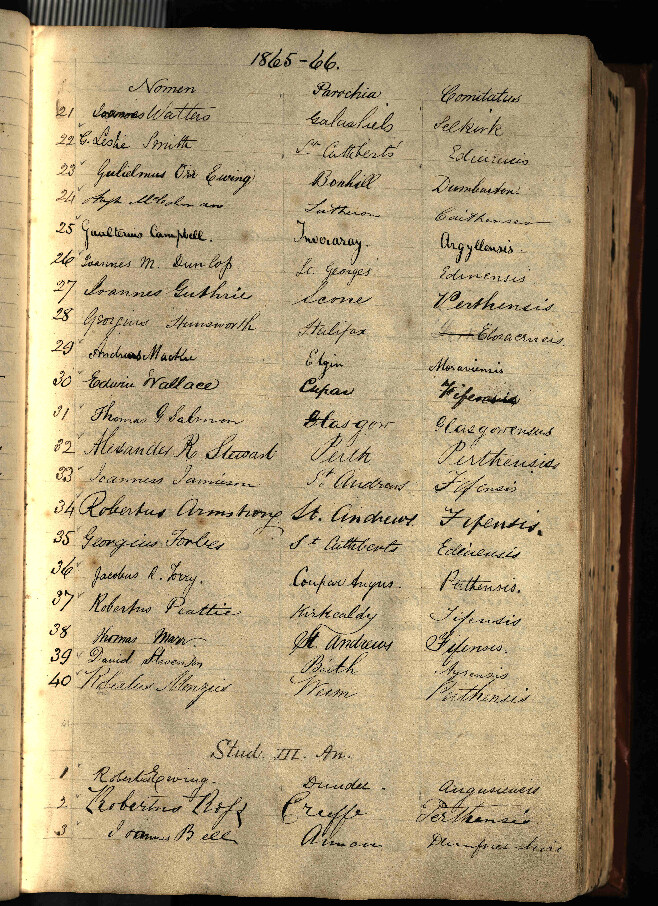 1865-66.
Nomen Parochia Comitatus
21 Joannes Watters Galashiels Selkirk
22 G. Leslie Smith St Cuthberts Edinensis
23 Gulielmus Orr Ewing Bonhill Dumbarton
24 Hugh Latheron Caithness
25 Gualterus Campbell. Inveraray. Argyllensis.
26 Joannes M. Dunlop St. Georges Edinensis
27 Joannes Guthrie Scone Perthensis
28 Georgius Hunsworth Halifax Eboracensis
29 Andreas Elgin Moraviensis
30 Edwin Wallace Cupar Fifensis
31 Thomas G Salmon Glasgow Glasgowensis
32 Alexander R Stewart Perth Perthensis
33 Joannes Jamieson St Andrews Fifensis
34 Robertus Armstrong St. Andrews Fifensis.
35 Georgius Forbes St Cuthberts Edinensis
36 Jacobus R. Torry. Coupar Angus. Perthensis.
37 Robertus Peattie Kirkcaldy Fifensis
38 Thomas Marr St Andrews Fifensis.
39 David Stevenson Beith Ayrensis
40 Robertus Menzies Weem Perthensis
Stud. III. An.
1 Robertus Ewing. Dundee. Angusiensis
2 Robertus Roſs Crieffe Perthensis
3 Joannes Bell Annan Dumfries-shire